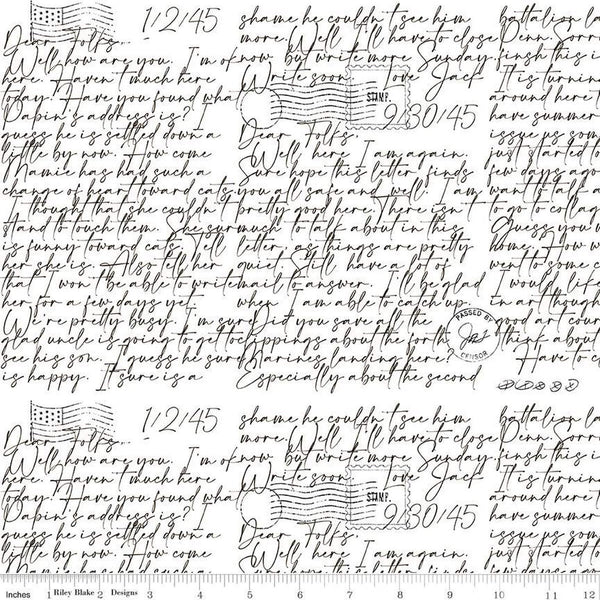 1/2/45
Dear Folks,
Well, how are you. I'm ok
here. Haven't much here
today. Have you found wha
Papin's address is? I
guess he is settled down a
little by now. How come
Mamie has had such a
change of heart toward cats.
I thought that she couldn't
stand to touch them. She sure
is funny toward cats. Tell
her she is. Also tell her
that I won't be able to write
her for a few days yet.
We're pretty busy. I'm sure
glad uncle is going to get to
see his son. I guess he sure
is happy. It sure is a
shame he couldn't see him
more. Well I'll have to close
now but write more Sunday.
Write soon Love Jack
STAMP
9/30/45
Dear Folks.
Well, here I am again.
Sure hope this letter finds
you all safe and well. I am
pretty good here. There isn't
much to talk about in this
letter, as things are pretty
quiet. Still have a lot of
mail to answer. I'll be glad
when I am able to catch up.
Did you save all the
clippings about the forth
Marines landing here?
Especially about the second
battalion la
Penn. Sorro
finsh this i
It is turnin
around here t
have summer
issue us som
just started to
few days ago
want to talk a
to go to collag
Guess you w
home. How w
went to some c
I would life
in art though
good art cour
think about
Have to cl
PASSED BY
CENSOR
1/2/45
Dear Folks,
Well, how are you. I'm ok
here. Haven't much here
today. Have you found wha
Papin's address is? I
guess he is settled down a
little by now. How come
Mamie has had such a
shame he couldn't see him
more. Well I'll have to close
now but write more Sunday.
Write soon Love Jack
STAMP
9/30/45
Dear Folks.
Well, here I am again.
Sure hope this letter finds
battalion la
Penn. Sorro
finsh this i
It is turnin
around here t
have summer
issue us som
just started to
few days ago
Inches 1 Riley Blake 2 Designs 3 4 5 6 7 8 9 10 11 12